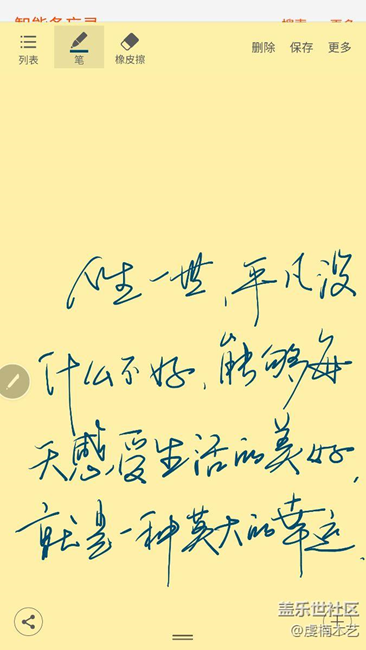 智能备忘录 搜索 更多
列表 笔 橡皮擦 删除 保存 更多
人生一世,平凡没
什么不好,能够每
天感受生活的美好,
就是一种莫大的幸运.
盖乐世社区
@虔楠木艺